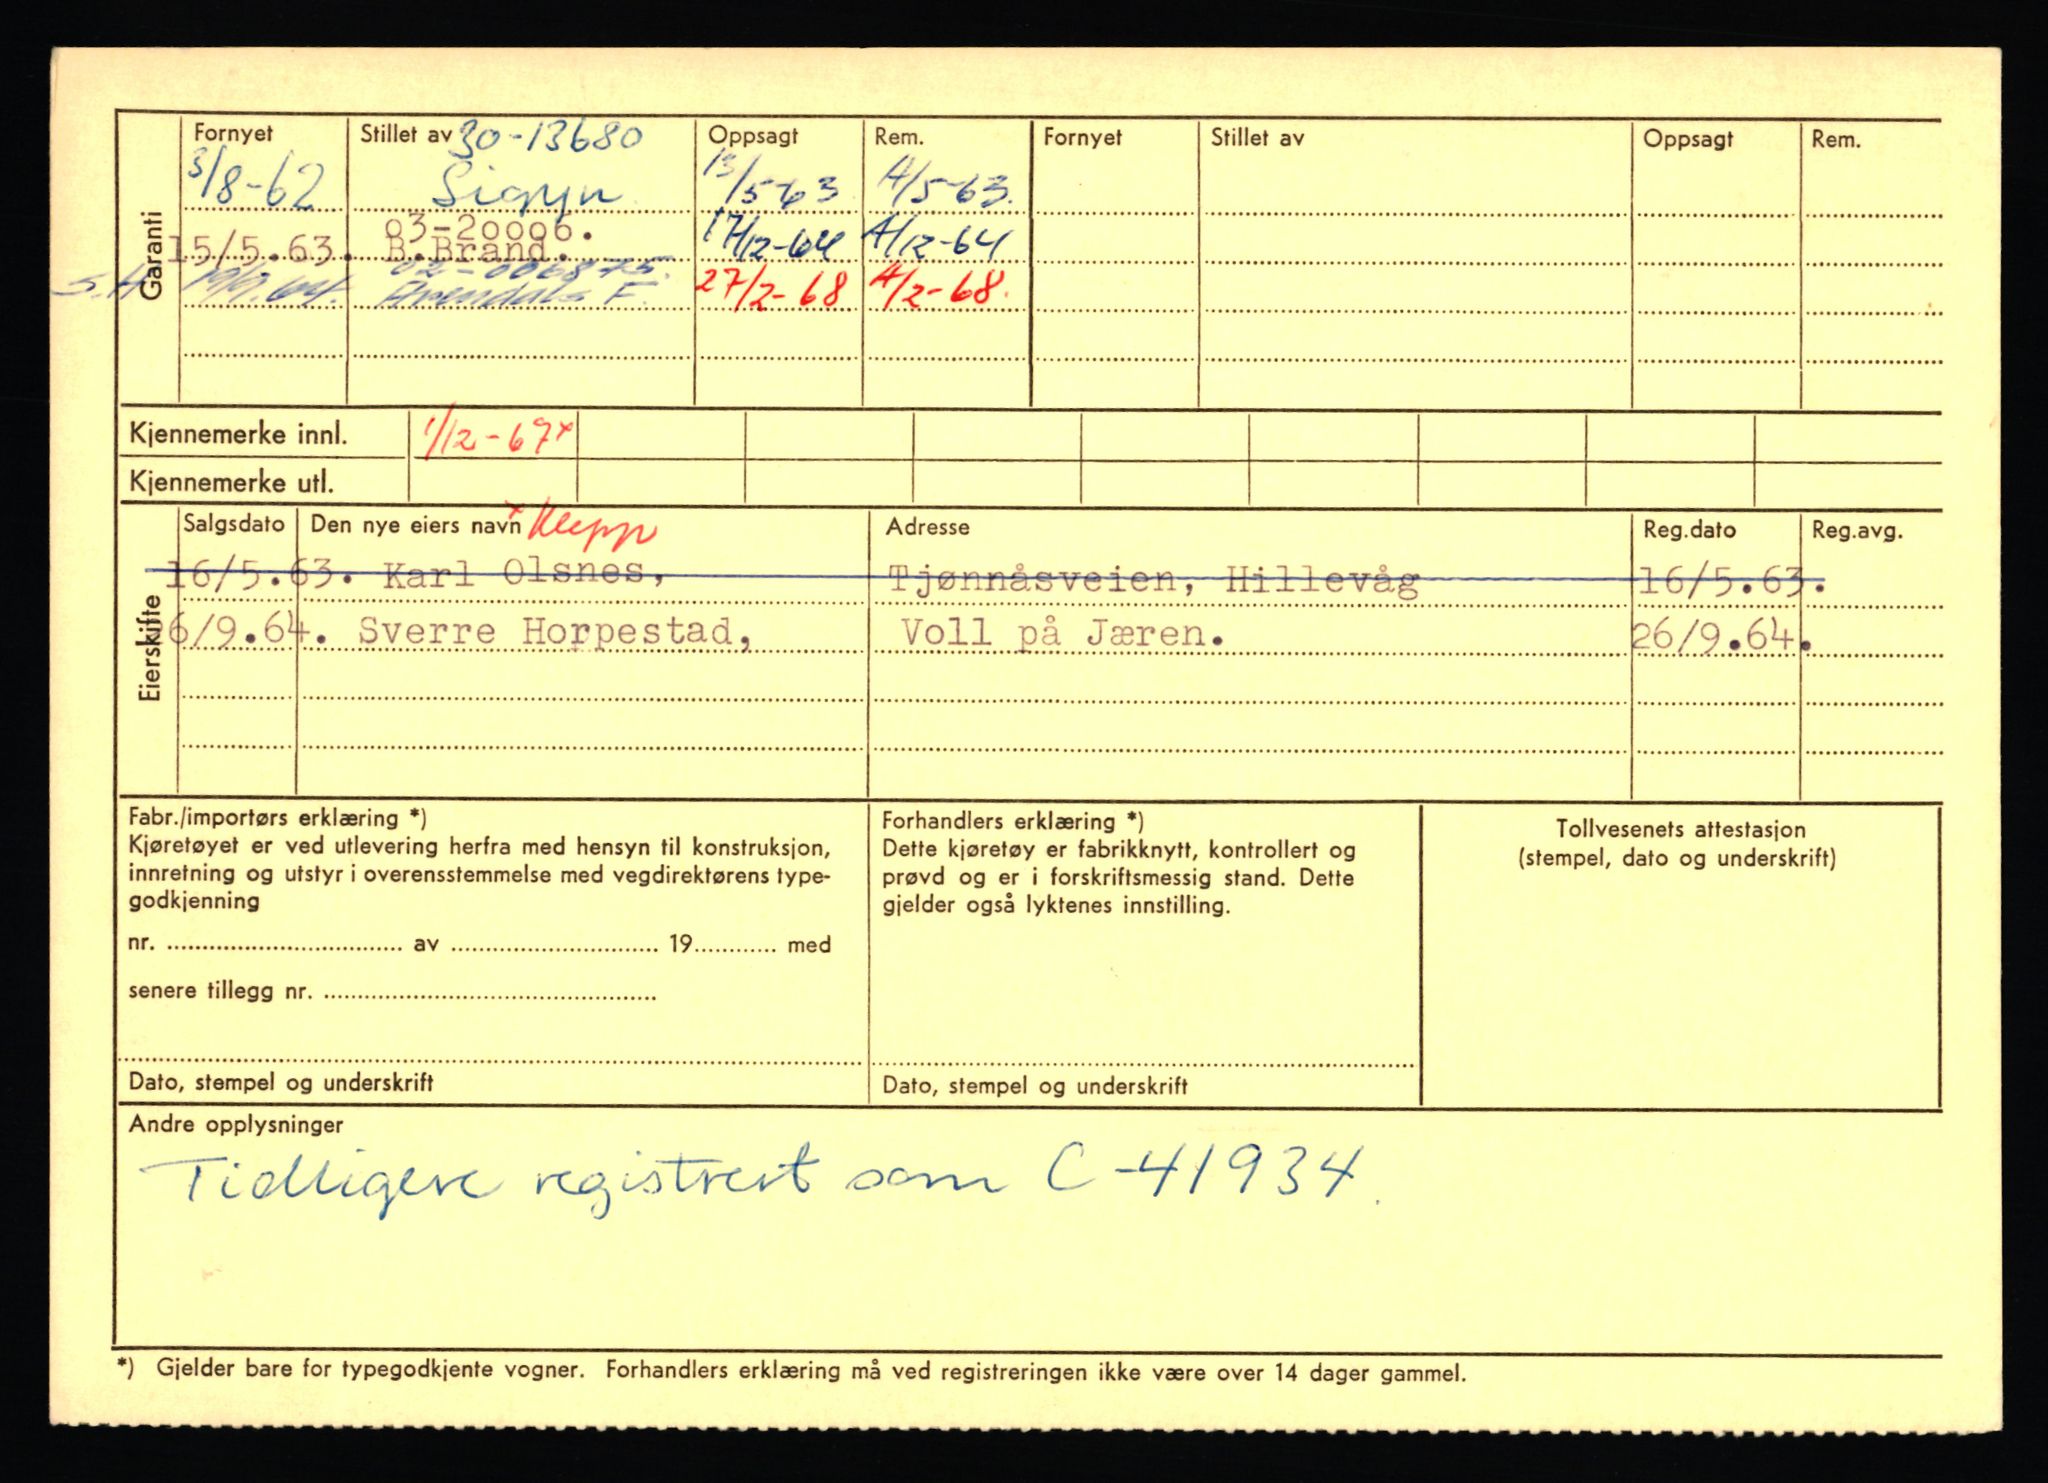 Garanti
Fornyet Stillet av 30-13680 Oppsagt Rem. Fornyet Stillet av Oppsagt Rem.
3/8-62 Sigyn 13/5-63 A/5-63.
03-20006.
15/5.63. B.Brand. 17/12-64 A/12-64
02-006875.
S.H 19/9.64. Arendals F. 27/2-68 A/2-68.
Kjennemerke innl. 1/12-67x
Kjennemerke utl.
Eierskifte
Salgsdato Den nye eiers navn x Klepp Adresse Reg.dato Reg.avg.
16/5.63. Karl Olsnes, Tjønnåsveien, Hillevåg 16/5.63.
6/9.64. Sverre Horpestad, Voll på Jæren. 26/9.64.
Fabr./importørs erklæring *)
Kjøretøyet er ved utlevering herfra med hensyn til konstruksjon,
innretning og utstyr i overensstemmelse med vegdirektørens type-
godkjenning
nr. .......... av .......... 19.......... med
senere tillegg nr. ..........
Dato, stempel og underskrift
Forhandlers erklæring *)
Dette kjøretøy er fabrikknytt, kontrollert og
prøvd og er i forskriftsmessig stand. Dette
gjelder også lyktenes innstilling.
Dato, stempel og underskrift
Tollvesenets attestasjon
(stempel, dato og underskrift)
Andre opplysninger
Tidligere registrert som C-41934.
*) Gjelder bare for typegodkjente vogner. Forhandlers erklæring må ved registreringen ikke være over 14 dager gammel.